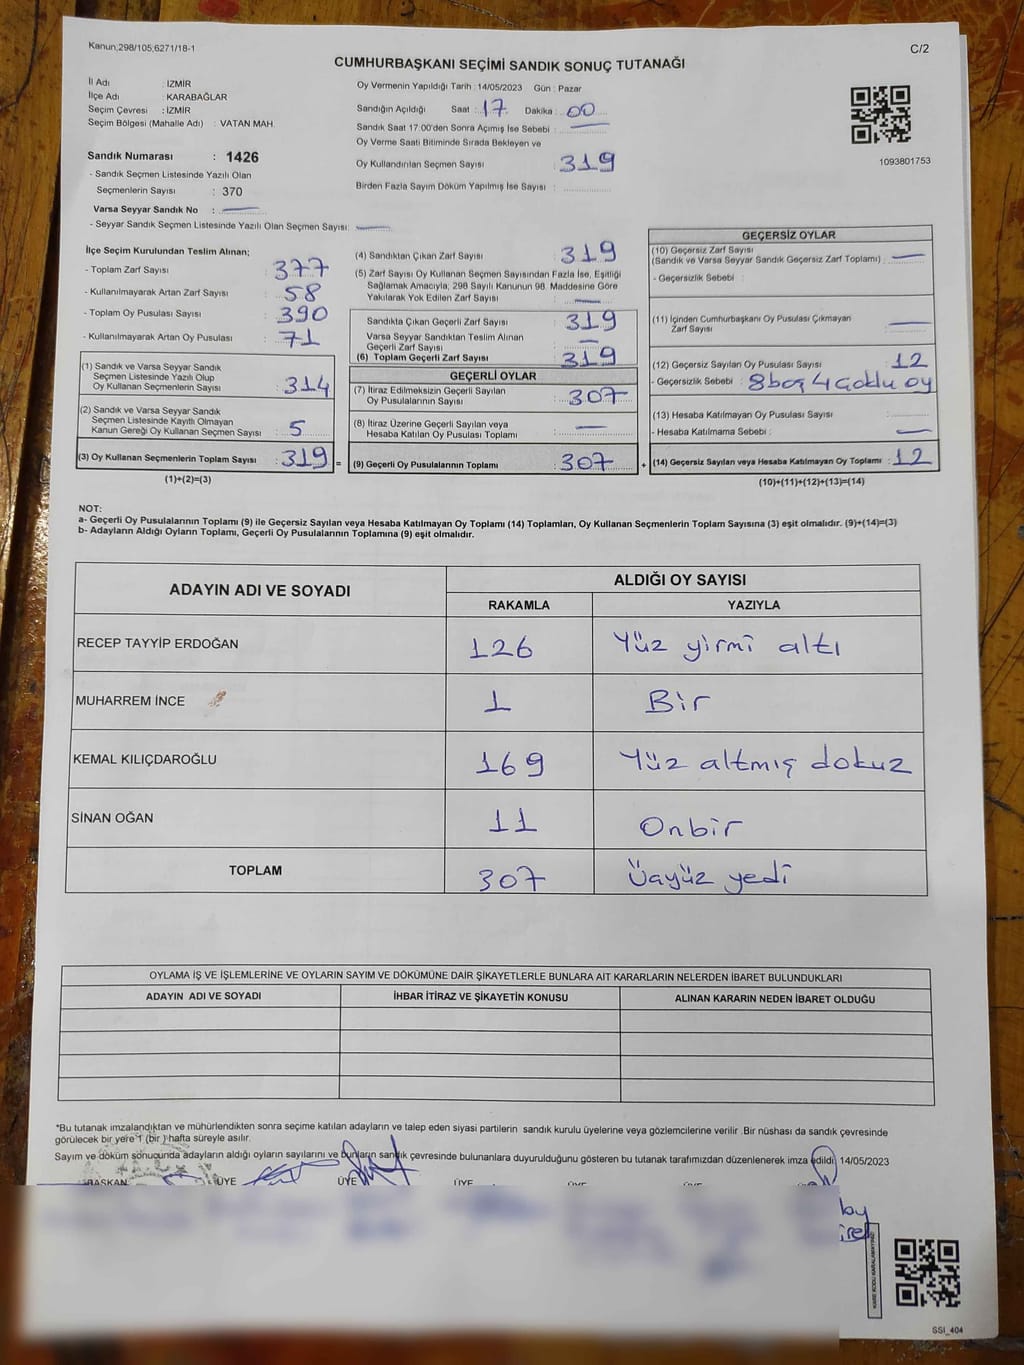 Kanun;298/105;6271/18-1
C/2
CUMHURBAŞKANI SEÇİMİ SANDIK SONUÇ TUTANAĞI
İl Adı : İZMİR
İlçe Adı : KARABAĞLAR
Seçim Çevresi : İZMİR
Seçim Bölgesi (Mahalle Adı) : VATAN MAH.
Sandık Numarası : 1426
- Sandık Seçmen Listesinde Yazılı Olan
Seçmenlerin Sayısı : 370
Varsa Seyyar Sandık No :
- Seyyar Sandık Seçmen Listesinde Yazılı Olan Seçmen Sayısı:
Oy Vermenin Yapıldığı Tarih : 14/05/2023 Gün : Pazar
Sandığın Açıldığı Saat : 17 Dakika : 00
Sandık Saat 17.00'den Sonra Açımış İse Sebebi :
Oy Verme Saati Bitiminde Sırada Bekleyen ve
Oy Kullandırılan Seçmen Sayısı : 319
Birden Fazla Sayım Döküm Yapılmış İse Sayısı :
1093801753
İlçe Seçim Kurulundan Teslim Alınan;
- Toplam Zarf Sayısı : 377
- Kullanılmayarak Artan Zarf Sayısı : 58
- Toplam Oy Pusulası Sayısı : 390
- Kullanılmayarak Artan Oy Pusulası : 71
(1) Sandık ve Varsa Seyyar Sandık
Seçmen Listesinde Yazılı Olup
Oy Kullanan Seçmenlerin Sayısı : 314
(2) Sandık ve Varsa Seyyar Sandık
Seçmen Listesinde Kayıtlı Olmayan
Kanun Gereği Oy Kullanan Seçmen Sayısı : 5
(3) Oy Kullanan Seçmenlerin Toplam Sayısı : 319 =
(1)+(2)=(3)
(4) Sandıktan Çıkan Zarf Sayısı : 319
(5) Zarf Sayısı Oy Kullanan Seçmen Sayısından Fazla İse, Eşitliği
Sağlamak Amacıyla; 298 Sayılı Kanunun 98. Maddesine Göre
Yakılarak Yok Edilen Zarf Sayısı :
Sandıkta Çıkan Geçerli Zarf Sayısı : 319
Varsa Seyyar Sandıktan Teslim Alınan
Geçerli Zarf Sayısı :
(6) Toplam Geçerli Zarf Sayısı : 319
GEÇERLİ OYLAR
(7) İtiraz Edilmeksizin Geçerli Sayılan
Oy Pusulalarının Sayısı : 307
(8) İtiraz Üzerine Geçerli Sayılan veya
Hesaba Katılan Oy Pusulası Toplamı :
(9) Geçerli Oy Pusulalarının Toplamı : 307 +
GEÇERSİZ OYLAR
(10) Geçersiz Zarf Sayısı
(Sandık ve Varsa Seyyar Sandık Geçersiz Zarf Toplamı) :
- Geçersizlik Sebebi :
(11) İçinden Cumhurbaşkanı Oy Pusulası Çıkmayan
Zarf Sayısı :
(12) Geçersiz Sayılan Oy Pusulası Sayısı : 12
- Geçersizlik Sebebi : 8 boş 4 çoklu oy
(13) Hesaba Katılmayan Oy Pusulası Sayısı :
- Hesaba Katılmama Sebebi :
(14) Geçersiz Sayılan veya Hesaba Katılmayan Oy Toplamı : 12
(10)+(11)+(12)+(13)=(14)
NOT:
a- Geçerli Oy Pusulalarının Toplamı (9) ile Geçersiz Sayılan veya Hesaba Katılmayan Oy Toplamı (14) Toplamları, Oy Kullanan Seçmenlerin Toplam Sayısına (3) eşit olmalıdır. (9)+(14)=(3)
b- Adayların Aldığı Oyların Toplamı, Geçerli Oy Pusulalarının Toplamına (9) eşit olmalıdır.
ADAYIN ADI VE SOYADI
ALDIĞI OY SAYISI
RAKAMLA YAZIYLA
RECEP TAYYİP ERDOĞAN 126 Yüz yirmi altı
MUHARREM İNCE 1 Bir
KEMAL KILIÇDAROĞLU 169 Yüz altmış dokuz
SİNAN OĞAN 11 Onbir
TOPLAM 307 Üçyüz yedi
OYLAMA İŞ VE İŞLEMLERİNE VE OYLARIN SAYIM VE DÖKÜMÜNE DAİR ŞİKAYETLERLE BUNLARA AİT KARARLARIN NELERDEN İBARET BULUNDUKLARI
ADAYIN ADI VE SOYADI İHBAR İTİRAZ VE ŞİKAYETİN KONUSU ALINAN KARARIN NEDEN İBARET OLDUĞU
*Bu tutanak imzalandıktan ve mühürlendikten sonra seçime katılan adayların ve talep eden siyasi partilerin sandık kurulu üyelerine veya gözlemcilerine verilir .Bir nüshası da sandık çevresinde
görülecek bir yere 1 (bir ) hafta süreyle asılır.
Sayım ve döküm sonucunda adayların aldığı oyların sayılarını ve bunların sandık çevresinde bulunanlara duyurulduğunu gösteren bu tutanak tarafımızdan düzenlenerek imza edildi. 14/05/2023
BAŞKAN ÜYE ÜYE ÜYE
KARE KODU KARALAMAYINIZ!
SSI_404